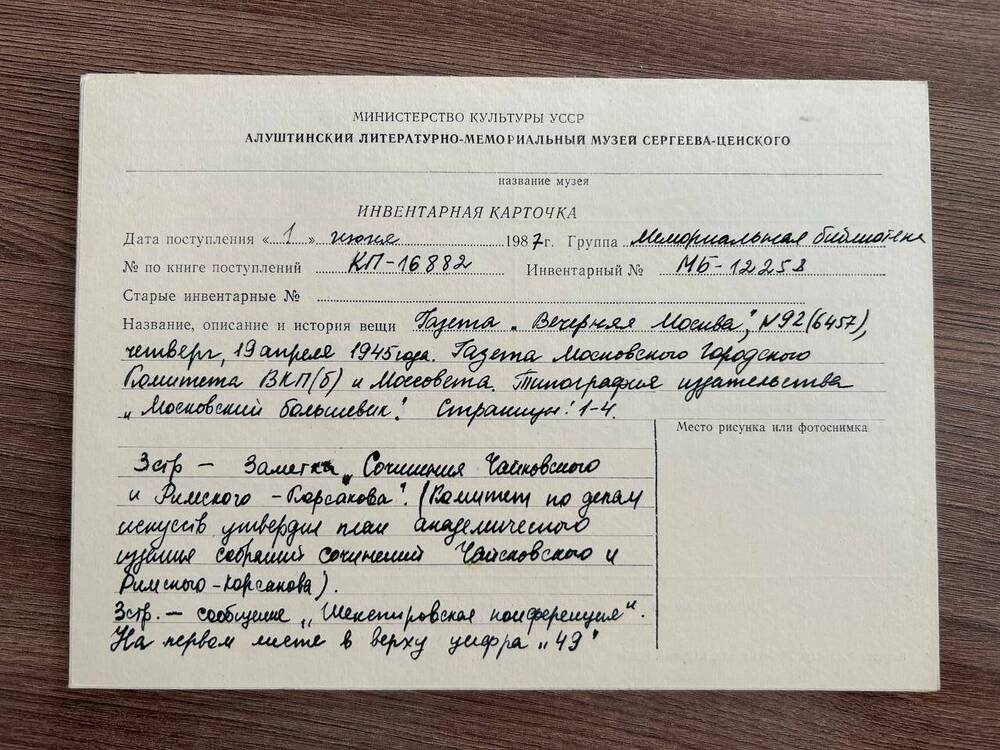 МИНИСТЕРСТВО КУЛЬТУРЫ УССР
АЛУШТИНСКИЙ ЛИТЕРАТУРНО-МЕМОРИАЛЬНЫЙ МУЗЕЙ СЕРГЕЕВА-ЦЕНСКОГО
название музея
ИНВЕНТАРНАЯ КАРТОЧКА
Дата поступления «1» июня 1987г. Группа Мемориальная библиотека
№ по книге поступлений КП-16882 Инвентарный № МБ-12253
Старые инвентарные №
Название, описание и история вещи Газета „Вечерняя Москва", N92(6457),
четверг, 19 апреля 1945 года. Газета Московского Городского
Комитета ВКП(б) и Моссовета. Типография издательства
„Московский большевик". Страницы: 1-4.
Место рисунка или фотоснимка
3 стр – Заметка „Сочинения Чайковского
и Римского-Корсакова". (Комитет по делам
искусств утвердил план академического
издания собраний сочинений Чайковского и
Римского-Корсакова).
3 стр. – сообщение „Шекспировская конференция".
На первом листе в верху цифра „49"